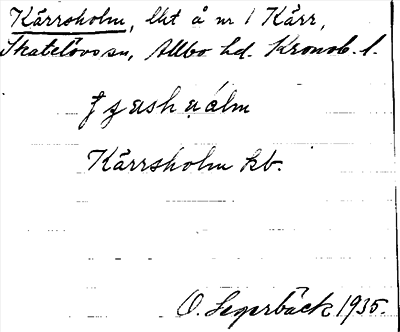 Kärrsholm, lht å nr 1 Kärr,
Skatelövs sn, Allbo hd. Kronob. l.
Kärrsholm kb.
O. Segerbäck 1935.